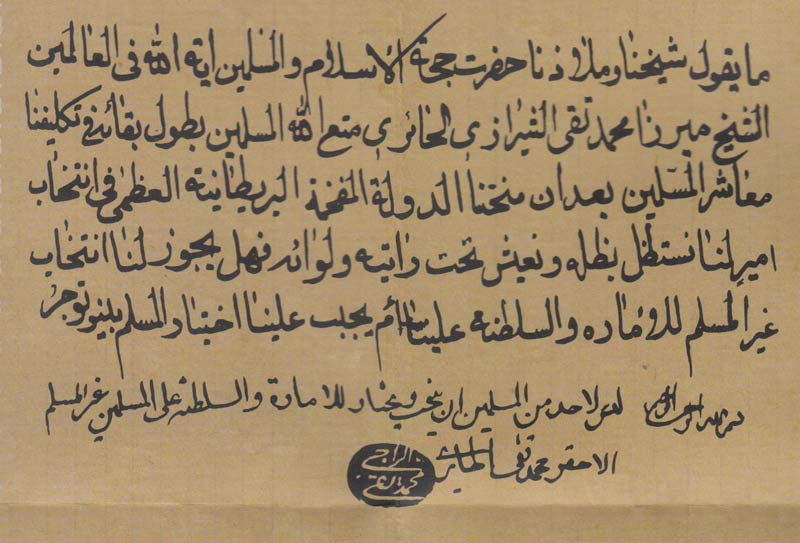 ما يقول شيخنا وملاذنا حضرت حجة الاسلام والمسلمين اية الله في العالمين
الشيخ ميرزا محمد تقي الشيرازي الحائري متع الله المسلمين بطول بقائه في تكليفنا
معاشر المسلمين بعد ان منحتنا الدولة المفخمة البريطانية العظمى في انتخاب
امير لنا نستظل بظله ونعيش تحت رايته ولوائه فهل يجوز لنا انتخاب
غير المسلم للامارة والسلطنة علينا ام يجب علينا اختيار المسلم بينوا توجروا
بسم الله الرحمن الرحيم ليس لاحد من المسلمين ان ينتخب ويختار للامارة والسلطنة على المسلمين غير المسلم
الاحقر محمد تقي الحائري
الراجي محمد تقي